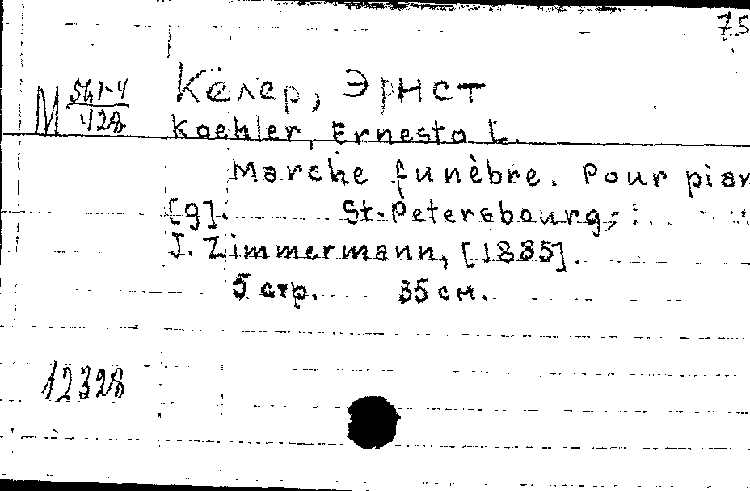 75
Кёлер, Эрнст
М 561-4/428
Koehler, Ernesto L.
Marche funèbre. Pour pian
[g]. St.-Petersbourg,
J. Zimmermann, [1885].
5 стр. 35 см.
12328